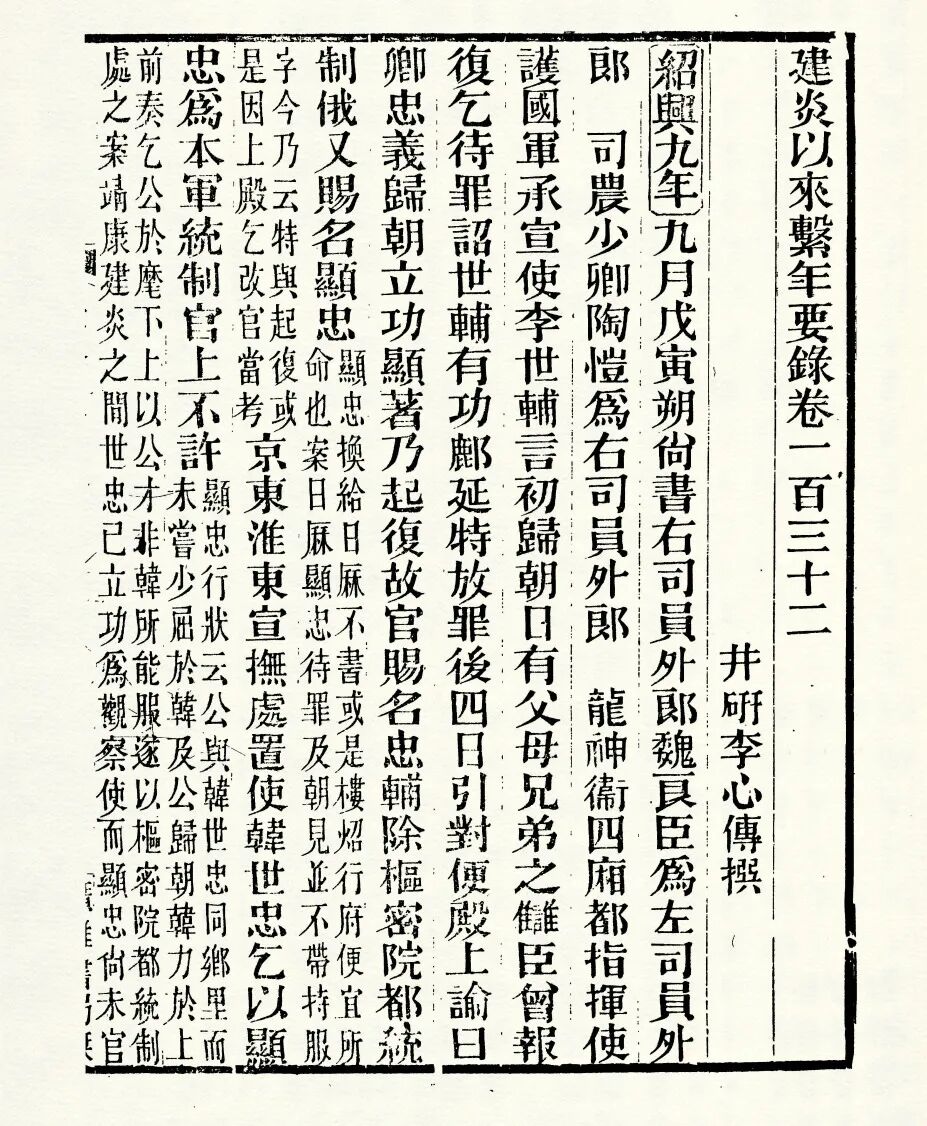 建炎以來繫年要錄卷一百三十二
井研李心傳撰
紹興九年九月戊寅朔尙書右司員外郞魏良臣爲左司員外
郞　司農少卿陶愷爲右司員外郞　龍神衞四廂都指揮使
護國軍承宣使李世輔言初歸朝日有父母兄弟之讎臣曾報
復乞待罪詔世輔有功鄜延特放罪後四日引對便殿上諭曰
卿忠義歸朝立功顯著乃起復故官賜名忠輔除樞密院都統
制俄又賜名顯忠
顯忠換給日厤不書或是樓炤行府便宜所
命也案日厤顯忠待罪及朝見並不帶持服
字今乃云特與起復或
是因上殿乞改官當考
京東淮東宣撫處置使韓世忠乞以顯
忠爲本軍統制官上不許
顯忠行狀云公與韓世忠同鄉里而
未嘗少屈於韓及公歸朝韓力於上
前奏乞公於麾下上以公才非韓所能服遂以樞密院都統制
處之案靖康建炎之間世忠已立功爲觀察使而顯忠尙未官